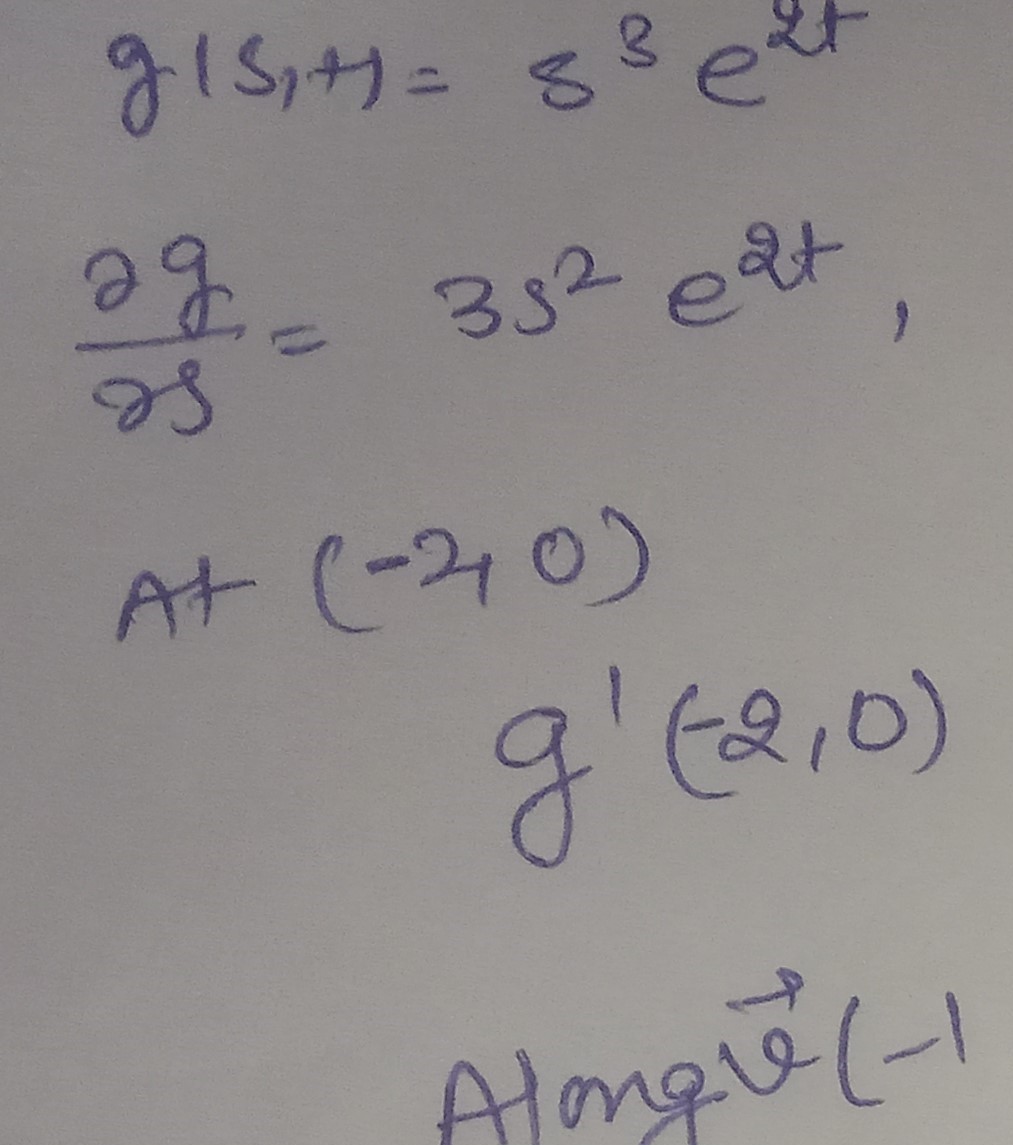 g(s,t) = s³ e²ᵗ
∂g/∂s = 3s² e²ᵗ ,
At (-2, 0)
g'(-2,0)
Along v⃗ (-1